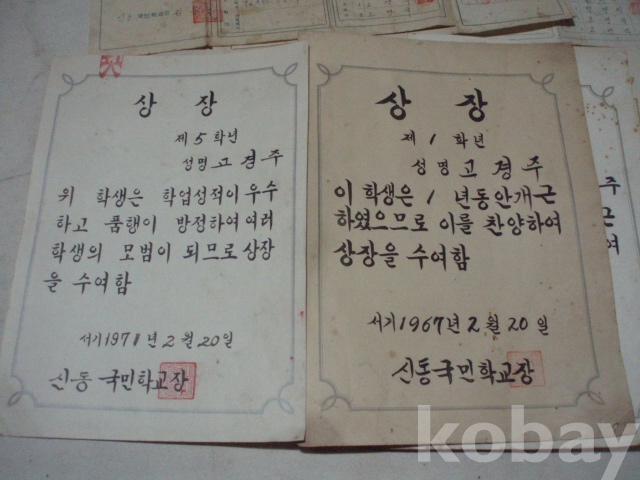 신동 국민학교장
상 장
제 5 학년
성명 고 경 주
위 학생은 학업성적이 우수
하고 품행이 방정하여 여러
학생의 모범이 되므로 상장
을 수여함
서기 1971 년 2 월 20 일
신동 국민학교장
상 장
제 1 학년
성명 고 경 주
이 학생은 1 년동안 개근
하였으므로 이를 찬양하여
상장을 수여함
서기 1967 년 2 월 20 일
신동국민학교장
주
근
여
kobay